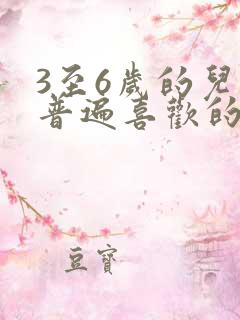 3至6歲的兒
普遍喜歡的
豆寶